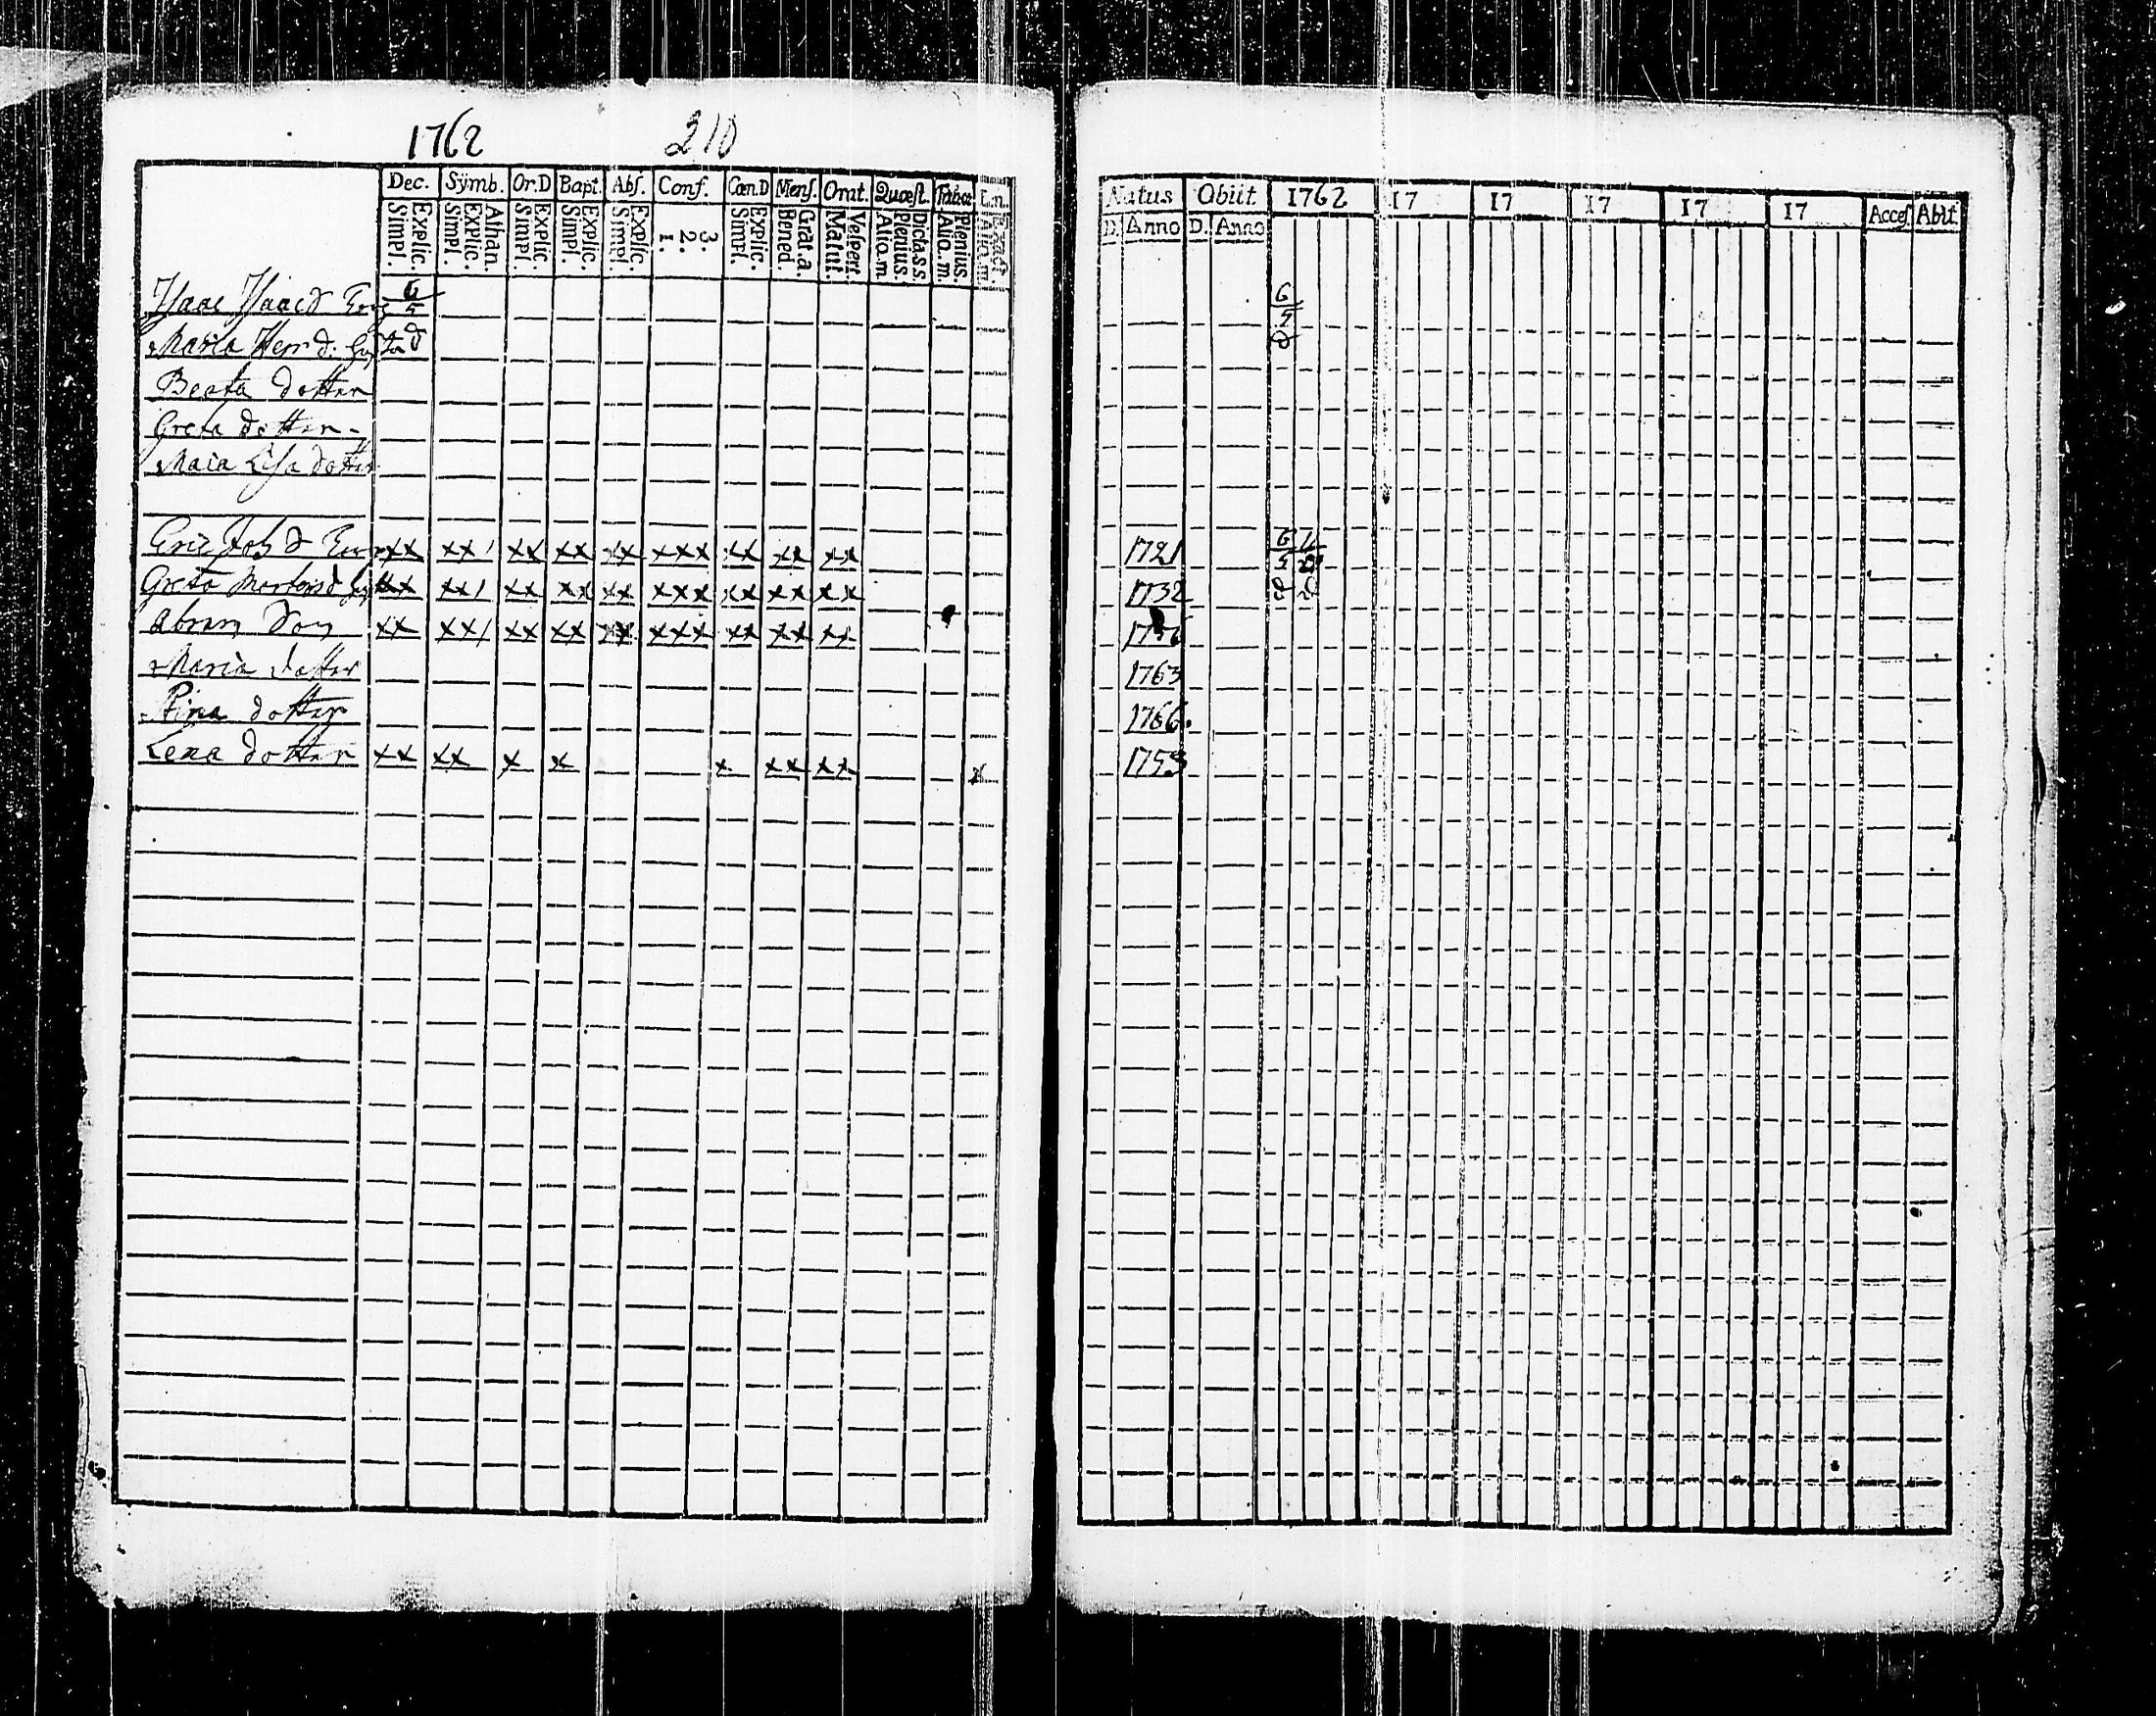 1762 210
Dec. Symb. Or.D Bapt. Abſ. Conf. Cœn.D Menſ. Orat. Quæſt. Tabul
Explic. Simpl. Athan. Explic. Simpl. Explic. Simpl. Explic. Simpl. Explic. Simpl. 3. 2. 1. Explic. Simpl. Grat.a. Bened. Veſpert. Matut. Dicta.s.s. Plenius. Alio.m. Plenius. Alio.m. Exact Alio.m.
Natus Obiit 1762 17 17 17 17 17 Acceſ. Abiit
D. Anno D. Anno
Isaac Isacsd 6/5 6/5
Maria Henr.d. d d
Beata dotter
Greta dotter
Maia Lisa dotter
Eric Joh d xx xx/ xx xx xx xxx xx xx xx 1721 6/5
Greta Mortensd xx xx/ xx xx xx xxx xx xx xx 1732 d d
Abram Son xx xx/ xx xx xx xxx xx xx xx
Maria dotter 1763
Pina dotter 1766.
Lena dotter xx xx x x x xx xx x 1753